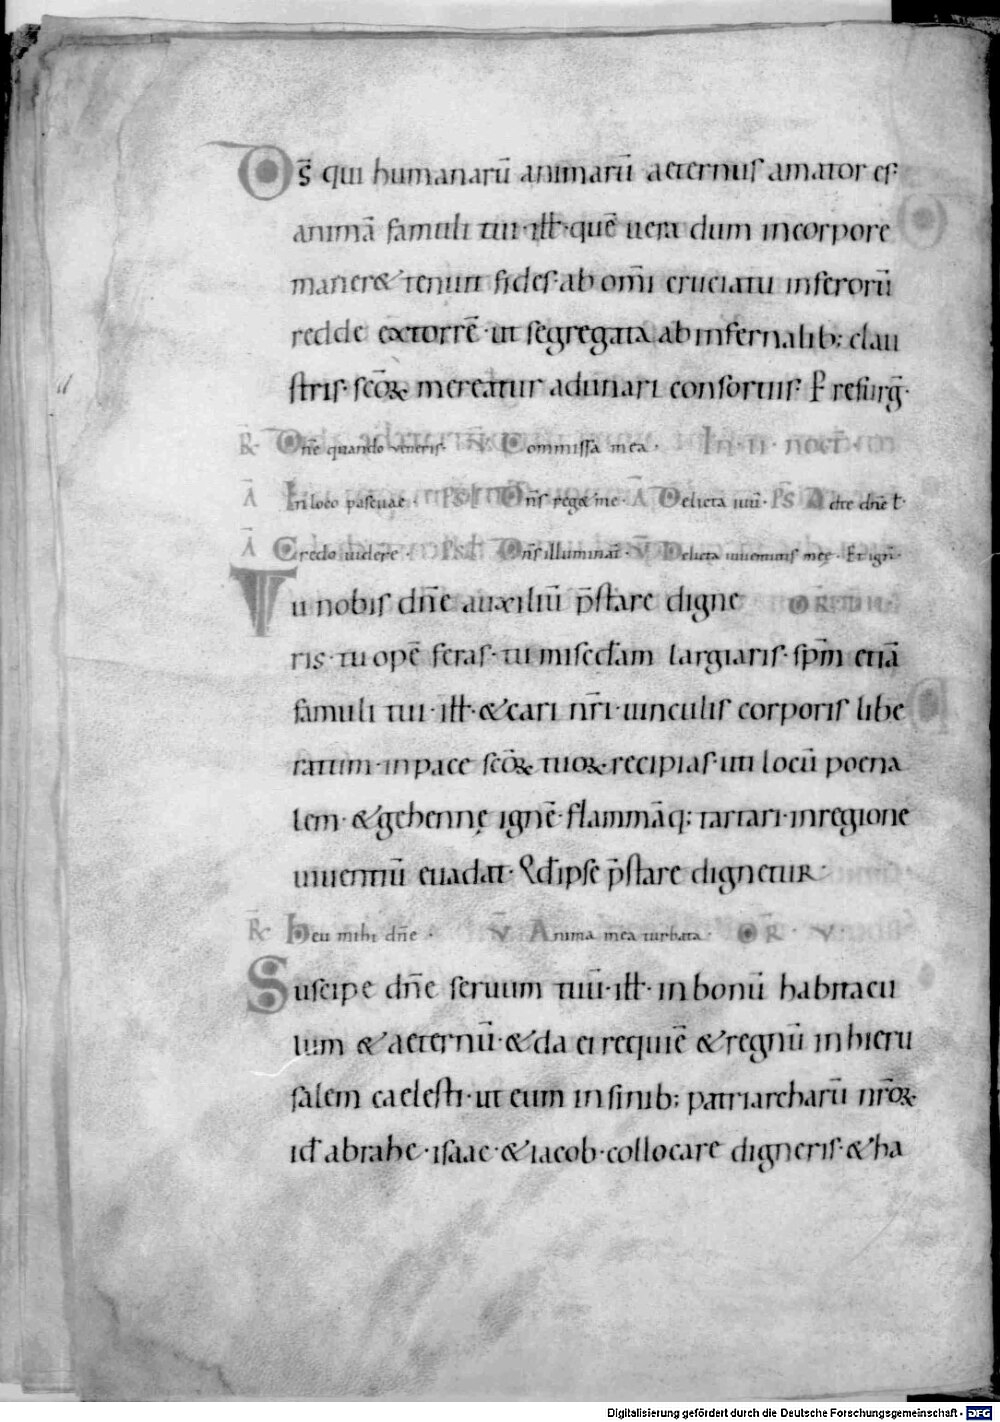 Ds̄ qui humanarū animarū aeternus amator es
animā famuli tui · ill · quē uera dum incorpore
maner& tenuit fides · ab om̄i cruciatu inferorū
redde extorrē · ut segregata ab infernalib; clau
stris · scōꝝ mereatur adunari consortiis · P resurḡ ·
R̄ Dn̄e quando veneris · V Commissa mea · In · ii · noct̄ ·
Ā In loco pascuae · Ps Dn̄s reg& me · Ā Delicta iuū · PS Ad te dn̄e l ·
Ā Credo uidere · Ps Dn̄s illuminat̄ · V Delicta iuuentutis meę · Et ign̄ ·
Tu nobis dn̄e auxiliū p̄stare digne
ris · tu opē feras · tu misēdam largiaris · sp̄m etiā
famuli tui · ill · & cari nr̄i · uinculis corporis libe
ratum · in pace scōꝝ tuoꝝ · recipias · uti locū poena
lem · & gehennę ignē · flammāq; tartari · in regione
uiuentiū euadat · Qd ipse p̄stare dignetur ·
R̄ Heu mihi dn̄e · V Anima mea turbata · OR̄ · V ·
Suscipe dn̄e seruum tuū · ill · in bonū habitacu
lum & aeternū · & da ei requiē & regnū in hieru
salem caelesti · ut eum in sinib; patriarcharū nr̄oꝝ
id abrahe · isaac · & iacob · collocare digneris · & ha
Digitalisierung gefördert durch die Deutsche Forschungsgemeinschaft - DFG